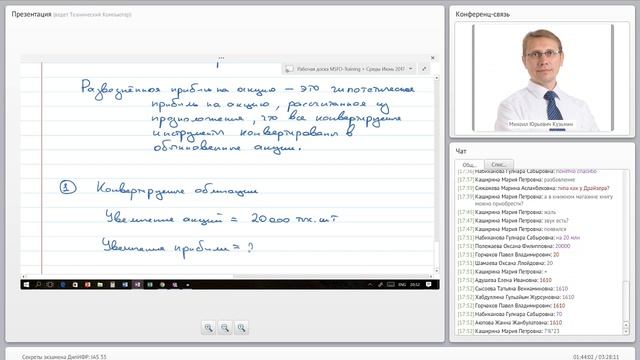 Презентация (ведет Технический Компьютер)
Рабочая доска MSFO-Training • Среды Июнь 2017
Разводнённая прибыль на акцию — это гипотетическая
прибыль на акцию, рассчитанная из
предположения, что все конвертируемые
инструменты конвертированы в
обыкновенные акции.
1 Конвертируемые облигации
Увеличение акций = 20 000 тыс. шт
Увеличение прибыли = ?
ENG 20:52
Секреты экзамена ДипИФР: IAS 33
01:44:02 / 03:28:11
Конференц-связь
Михаил Юрьевич Кузьмин
Чат
Общ... Спис...
[17:36] Набиканова Гулнара Сабыровна: понятно спасибо
[17:37] Каширина Мария Петровна: разбавление
типа как у Драйзера?
[17:40] Каширина Мария Петровна: а в книжном магазине книгу можно приобрести?
[17:49] Каширина Мария Петровна: жаль
[17:49] Каширина Мария Петровна: звук есть?
[17:49] Каширина Мария Петровна: появился
[17:51] Набиканова Гулнара Сабыровна: на 20 млн
[17:51] Полежаева Оксана Филипповна: 20000
[17:51] Горчаков Павел Владимирович: 20
[17:51] Шамаева Оксана Ллойдовна: 20
[17:52] Каширина Мария Петровна: +
[17:52] Адушева Елена Ивановна: 1610
[17:52] Сысоева Татьяна Вениаминовна: 1610
[17:52] Хабдуллина Гульайым Журсуновна: 1610
[17:52] Горчаков Павел Владимирович: 1610
[17:52] Набиканова Гулнара Сабыровна: 70
[17:52] Аюпова Жанна Жанбулатовна: 1610
[17:53] Каширина Мария Петровна: 7%*23